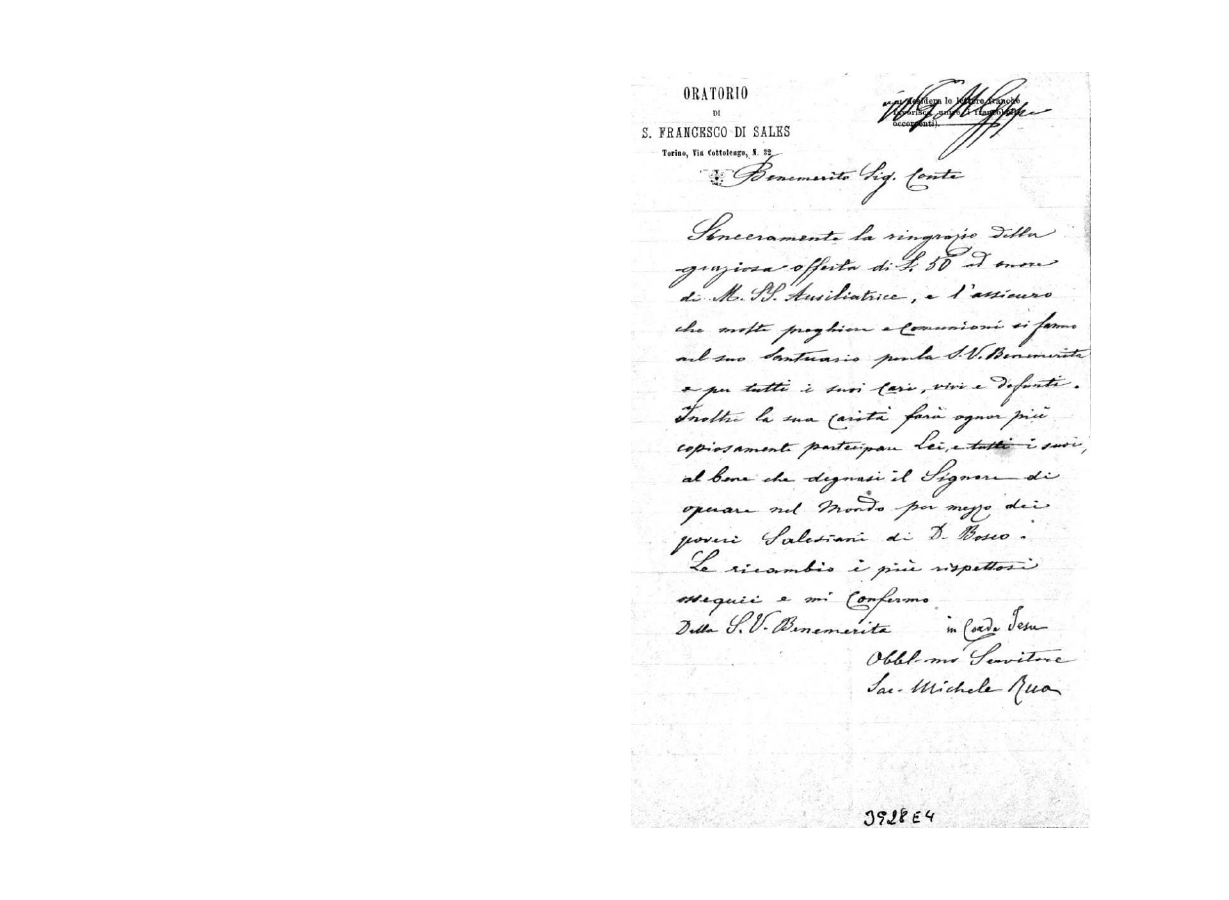 ORATORIO
DI
S. FRANCESCO DI SALES
Torino, Via Cottolengo, N. 32
Benemerito Sig. Conte
Sinceramente la ringrazio della
graziosa offerta di L. 50 ad onore
di M. SS. Ausiliatrice, e l'assicuro
che molte preghiere e Comunioni si fanno
nel suo Santuario per la S. V. Benemerita
e per tutti i suoi Cari, vivi e defunti.
Inoltre la sua Carità farà ognor più
copiosamente partecipare Lei, e tutti i suoi,
al bene che degnasi il Signore di
operare nel Mondo per mezzo dei
poveri Salesiani di D. Bosco.
Le ricambio i più rispettosi
ossequii e mi Confermo
Della S. V. Benemerita in Corde Jesu
Obbl-mo Servitore
Sac. Michele Rua
3928E4